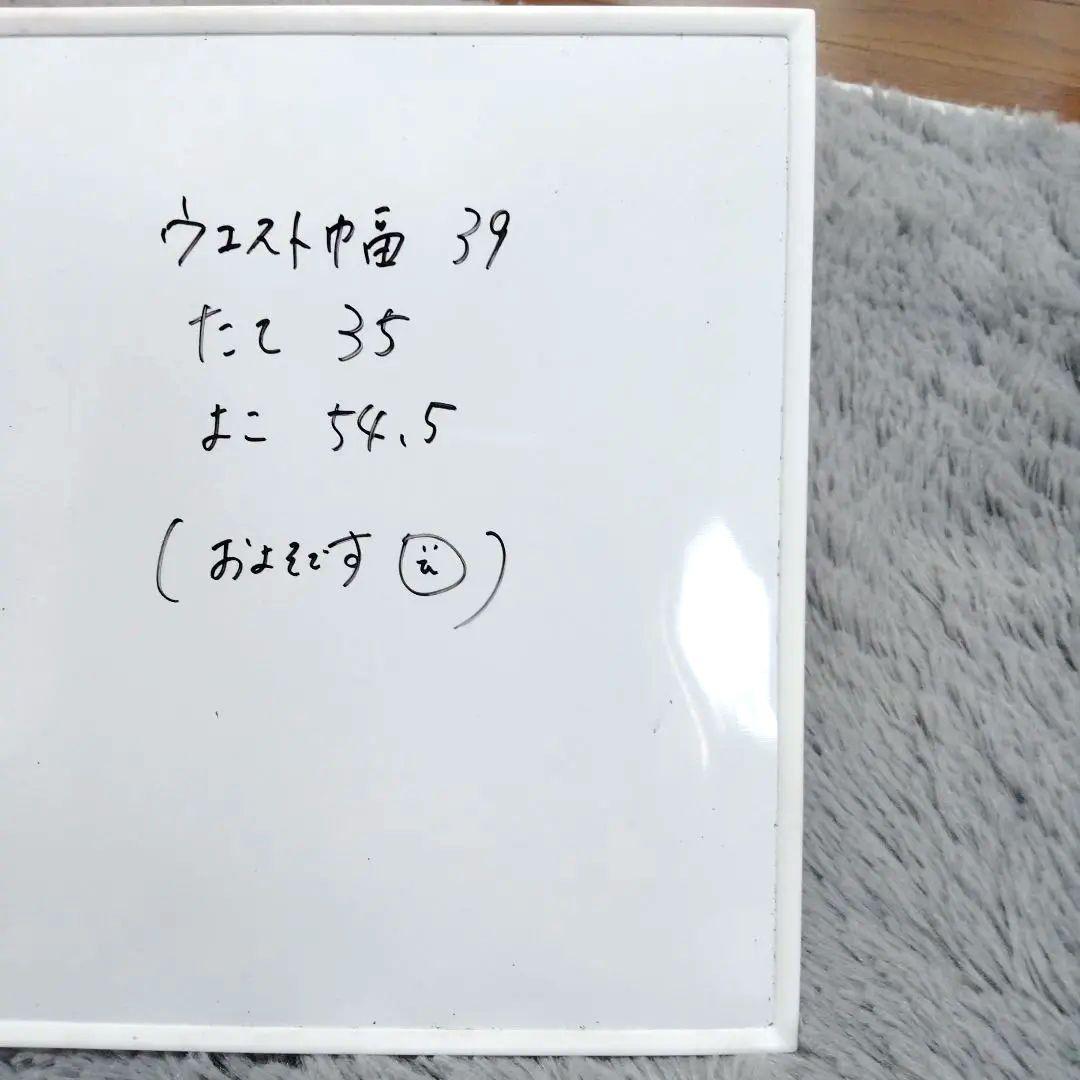 ウエスト幅 39
たて 35
よこ 54.5
(およそです)